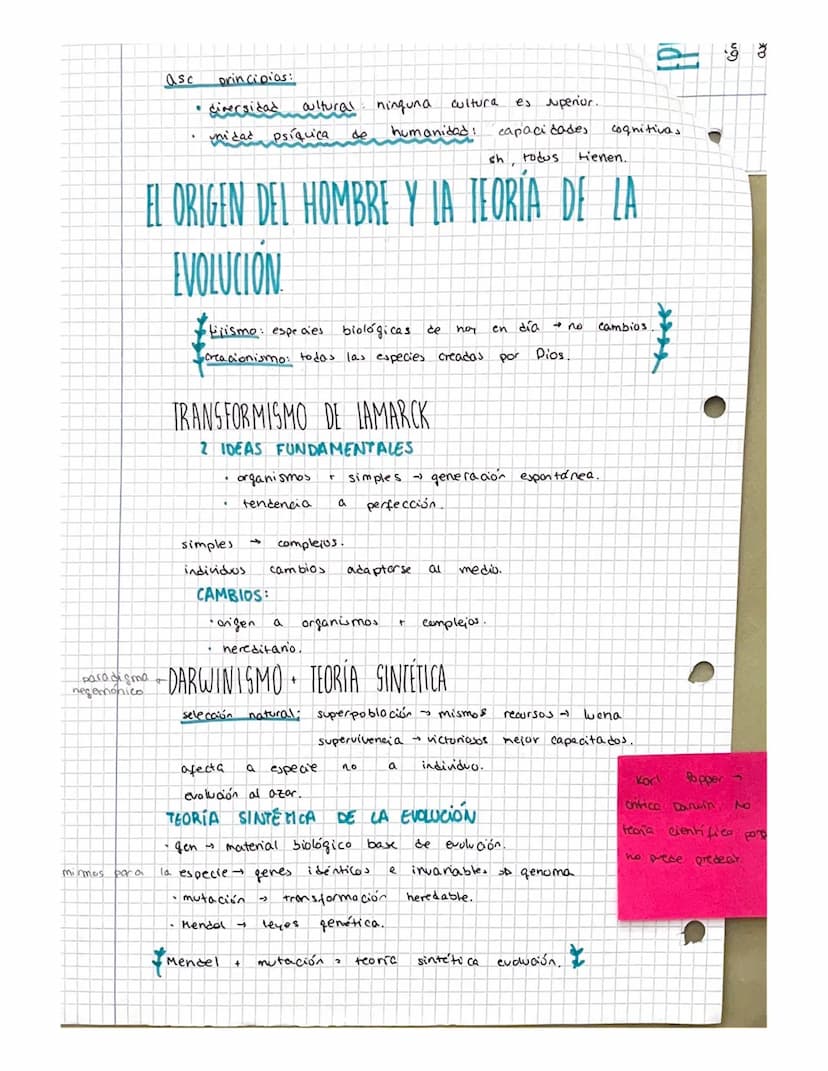 asc principios:
• diversidad cultural: ninguna cultura es superior.
• unidad psíquica de humanidad: capacidades cognitivas
sh, todos tienen.
EL ORIGEN DEL HOMBRE Y LA TEORÍA DE LA
EVOLUCIÓN.
fijismo: especies biológicas de hoy en día → no cambios.
creacionismo: todas las especies creadas por Dios.
TRANSFORMISMO DE LAMARCK
2 IDEAS FUNDAMENTALES
• organismos + simples → generación espontánea.
• tendencia a perfección.
simples → complejos.
individuos cambios adaptarse al medio.
CAMBIOS:
• origen a organismos + complejos.
• hereditario.
paradigma
hegemónico
DARWINISMO + TEORÍA SINTÉTICA
selección natural: superpoblación → mismos recursos → lucha
supervivencia → victoriosos mejor capacitados.
afecta a especie no a individuo.
evolución al azar.
TEORÍA SINTÉTICA DE LA EVOLUCIÓN
• gen → material biológico base de evolución.
mismos para la especie → genes idénticos e invariables → genoma
• mutación → transformación heredable.
• Mendel → leyes genética.
Mendel + mutación = teoría sintética evolución.
Karl Popper →
critica Darwin. No
teoría científica
no puede predecir.